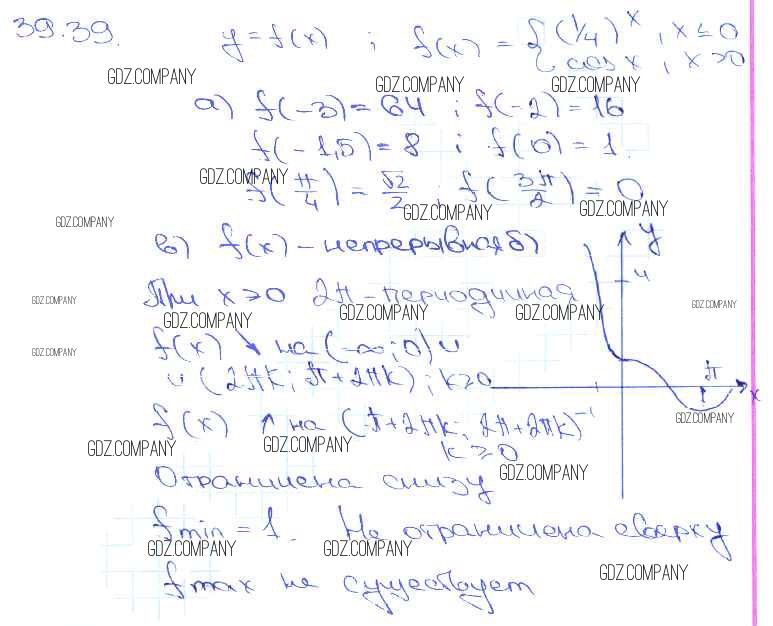 39.39.
y = f(x) ; f(x) = { (1/4)^x , x ≤ 0
cos x , x > 0
GDZ.COMPANY
GDZ.COMPANY GDZ.COMPANY
а) f(-3) = 64 ; f(-2) = 16
f(-1,5) = 8 ; f(0) = 1.
GDZ.COMPANY
f(π/4) = √2/2 ; f(3π/2) = 0
GDZ.COMPANY GDZ.COMPANY
GDZ.COMPANY
в) f(x) - непрерывная б)
y
4
При x > 0 2π - периодичная
GDZ.COMPANY GDZ.COMPANY
GDZ.COMPANY GDZ.COMPANY GDZ.COMPANY
f(x) ↘ на (-∞; 0) ∪
GDZ.COMPANY
∪ (2πk; π+2πk) ; k ≥ 0
π
x
f(x) ↑ на (π+2πk; 2π+2πk)
-1
GDZ.COMPANY
k ≥ 0
GDZ.COMPANY GDZ.COMPANY
Ограничена снизу
GDZ.COMPANY
fmin = 1. Не ограничена сверху
GDZ.COMPANY GDZ.COMPANY
fmax не существует
GDZ.COMPANY